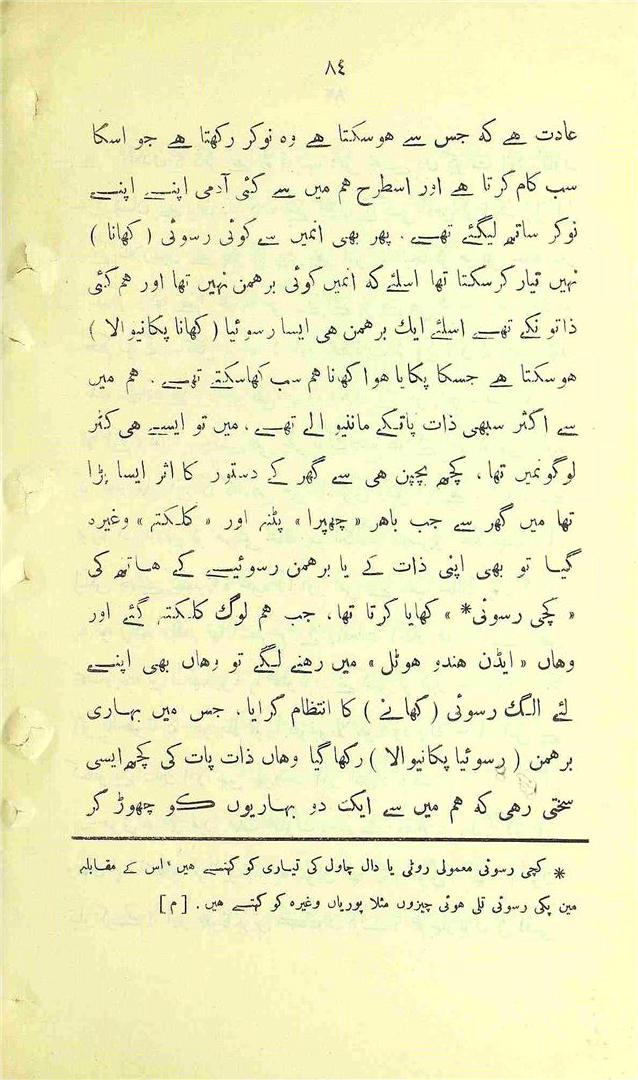 ٨٤
عادت ہے کہ جس سے ہوسکتا ہے وہ نوکر رکھتا ہے جو اسکا
سب کام کرتا ہے اور اسطرح ہم میں سے کئی آدمی اپنے اپنے
نوکر ساتھ لیگئے تھے. پھر بھی انمیں سے کوئی رسوئی ( کھانا )
نہیں تیار کرسکتا تھا اسلئے کہ انمیں کوئی برہمن نہیں تھا اور ہم کئی
ذاتو نکے تھے اسلئے ایک برہمن ہی ایسا رسوئیا ( کھانا پکانیوالا )
ہوسکتا ہے جسکا پکایا ہوا کھانا ہم سب کھاسکتے تھے. ہم میں
سے اکثر سبھی ذات پاتکے ماننیوالے تھے، میں تو ایسے ہی کٹر
لوگونمیں تھا، کچھ بچپن ہی سے گھر کے دستور کا اثر ایسا پڑا
تھا میں گھر سے جب باہر « چھپرا » پٹنہ اور « کلکتہ » وغیرہ
گیا تو بھی اپنی ذات کے یا برہمن رسوئیے کے ہاتھ کی
« کچی رسوئی* » کھایا کرتا تھا، جب ہم لوگ کلکتہ گئے اور
وہاں « ایڈن ہندو ہوٹل » میں رہنے لگے تو وہاں بھی اپنے
لئے الگ رسوئی ( کھانے ) کا انتظام کرایا، جس میں بہاری
برہمن ( رسوئیا پکانیوالا ) رکھا گیا وہاں ذات پات کی کچھ ایسی
سختی رہی کہ ہم میں سے ایک دو بہاریوں کو چھوڑ کر
* کچی رسوئی معمولی روٹی یا دال چاول کی تیاری کو کہتے ہیں، اس کے مقابلہ
مین پکی رسوئی تلی ہوئی چیزوں مثلا پوریاں وغیرہ کو کہتے ہیں. [ م ]